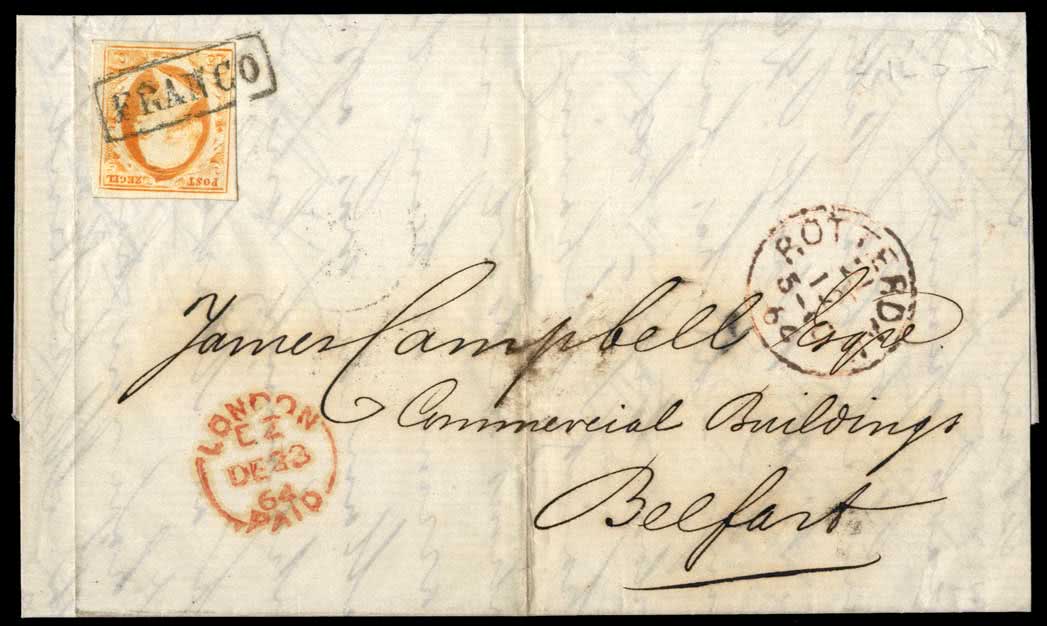 FRANCO
POST ZEGEL
ROTTERD
James Campbell Esqre
Commercial Buildings
Belfast
LONDON
EZ
DE 23
64
PAID